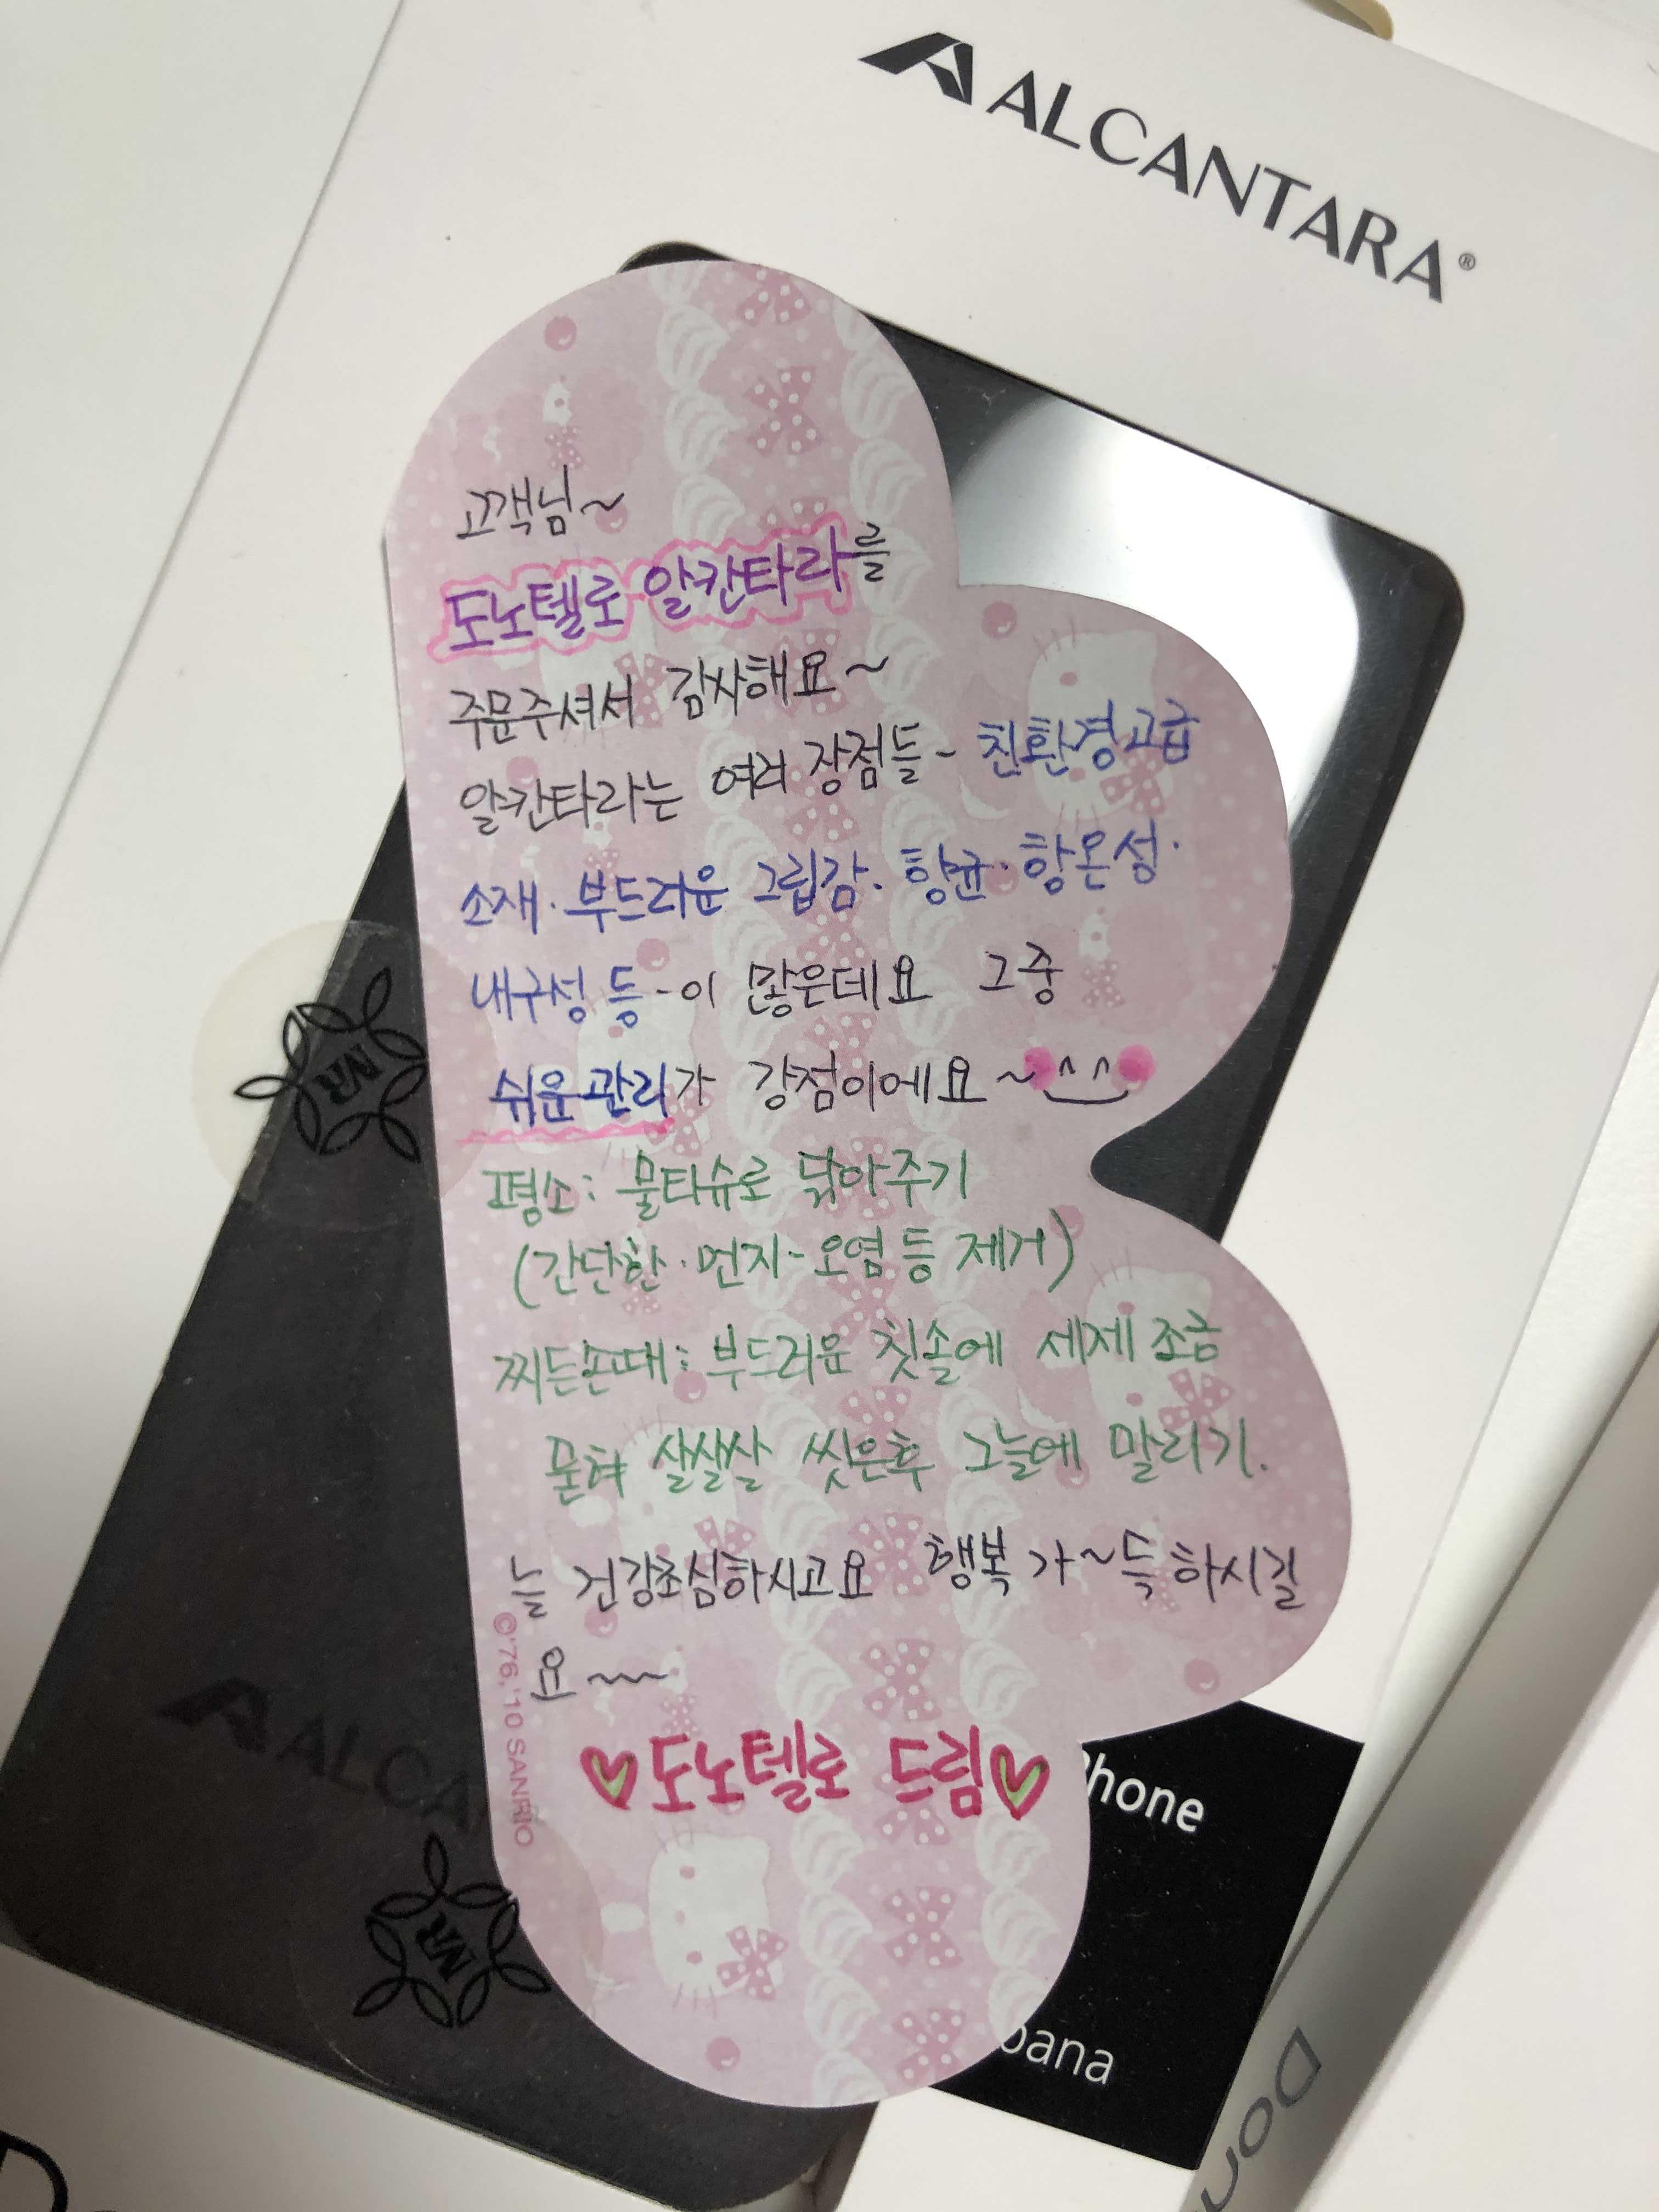 ALCANTARA®
고객님~
도노텔로 알칸타라를
주문주셔서 감사해요~
알칸타라는 여러 장점들- 친환경고급
소재·부드러운 그립감·항균·항온성·
내구성 등-이 많은데요 그중
쉬운관리가 강점이에요~^^
평소: 물티슈로 닦아주기
(간단한·먼지-오염 등 제거)
찌든손때: 부드러운 칫솔에 세제 조금
묻혀 살살살 씻은후 그늘에 말리기.
늘 건강조심하시고요 행복 가~득하시길
요~~~
♡도노텔로 드림♡
©'76,'10 SANRIO
ALCA
MR
MR
Phone
bana
Don